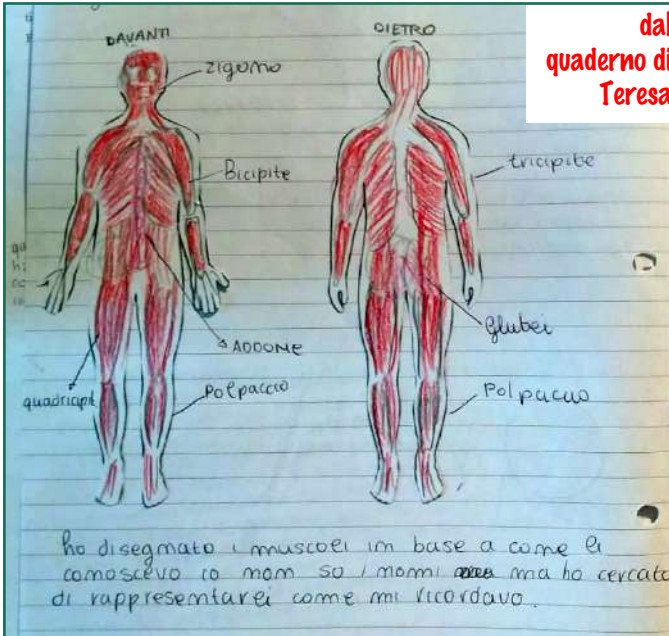 dal
quaderno di
Teresa
DAVANTI
DIETRO
zigomo
Bicipite
tricipite
ADDOME
Glutei
quadricipit
Polpaccio
Polpaccio
ho disegnato i muscoli in base a come li
conoscevo io non so i nomi ma ho cercato
di rappresentarli come mi ricordavo.